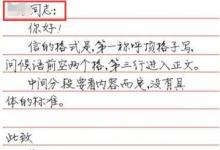 同志：
你好！
信的格式是，第一称呼顶格子写，
问候语前空两个格，第三行进入正文。
中间分段要看内容而定，没有具
体的标准。
此致